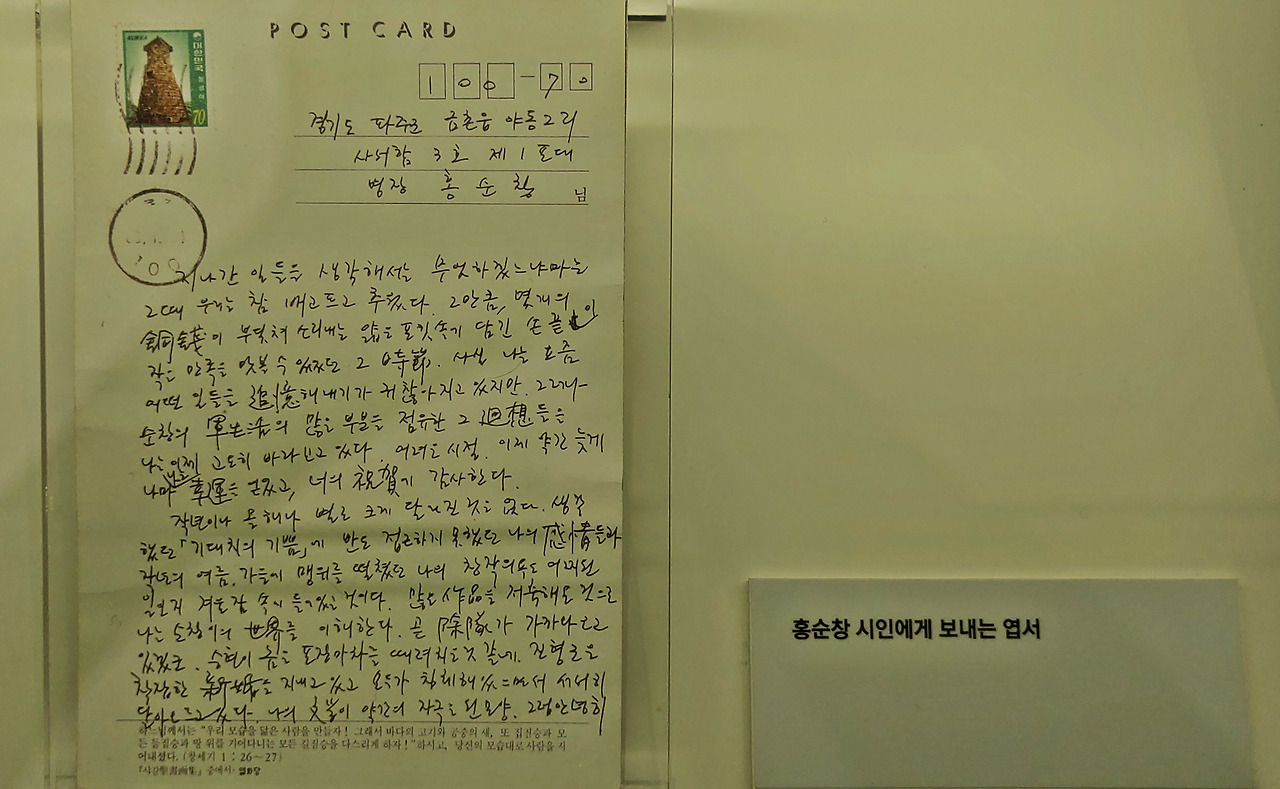 POST CARD
KOREA
대한민국
70
100-70
경기도 파주군 금촌읍 야동2리
사서함 3호 제1포대
병장 홍순창 님
지나간 일들을 생각해서는 무엇하겠느냐마는
그때 우리는 참 배고프고 추웠다. 그만큼, 몇개의
銅錢이 부딪쳐 소리내는 얇은 포킷속기 담긴 손끝이
작은 만족을 맛볼 수 있었던 그 時節. 사실 나는 요즘
어떤 일들을 追憶해내기가 귀찮아지고 있지만. 그러나
순창의 軍生活의 많은 부분을 점유한 그 廻想들은
나는 이제 고요히 바라보고 있다. 어려운 시절. 이제 약간 늦게
나마 나는 幸運을 얻었고, 너의 祝賀가 감사한다.
작년이나 올해나 별로 크게 달라진 것은 없다. 생각
했던 「기대치의 기쁨」에 반도 접근하지 못했던 나의 感情들과
작년의 여름, 가을에 맹위를 떨쳤던 나의 창작의욕도 어찌된
일인지 겨울잠 속에 들어있는 것이다. 많은 作品을 저축해온 것으로
나는 순창이의 世界를 이해한다. 곧 除隊가 가까와오고
있겠군.
포장마차를 때려치운 것 같네.
지내고 있고 모두가 침체해 있으면서 서서히
나의 文운이 약간의 자극은 된 모양. 그럼 안녕히
하느님께서는 “우리 모습을 닮은 사람을 만들자! 그래서 바다의 고기와 공중의 새, 또 집짐승과 모
든 들짐승과 땅 위를 기어다니는 모든 길짐승을 다스리게 하자!” 하시고, 당신의 모습대로 사람을 지
어내셨다. (창세기 1 : 26~27)
『샤갈聖書画集』 중에서· 열화당
홍순창 시인에게 보내는 엽서